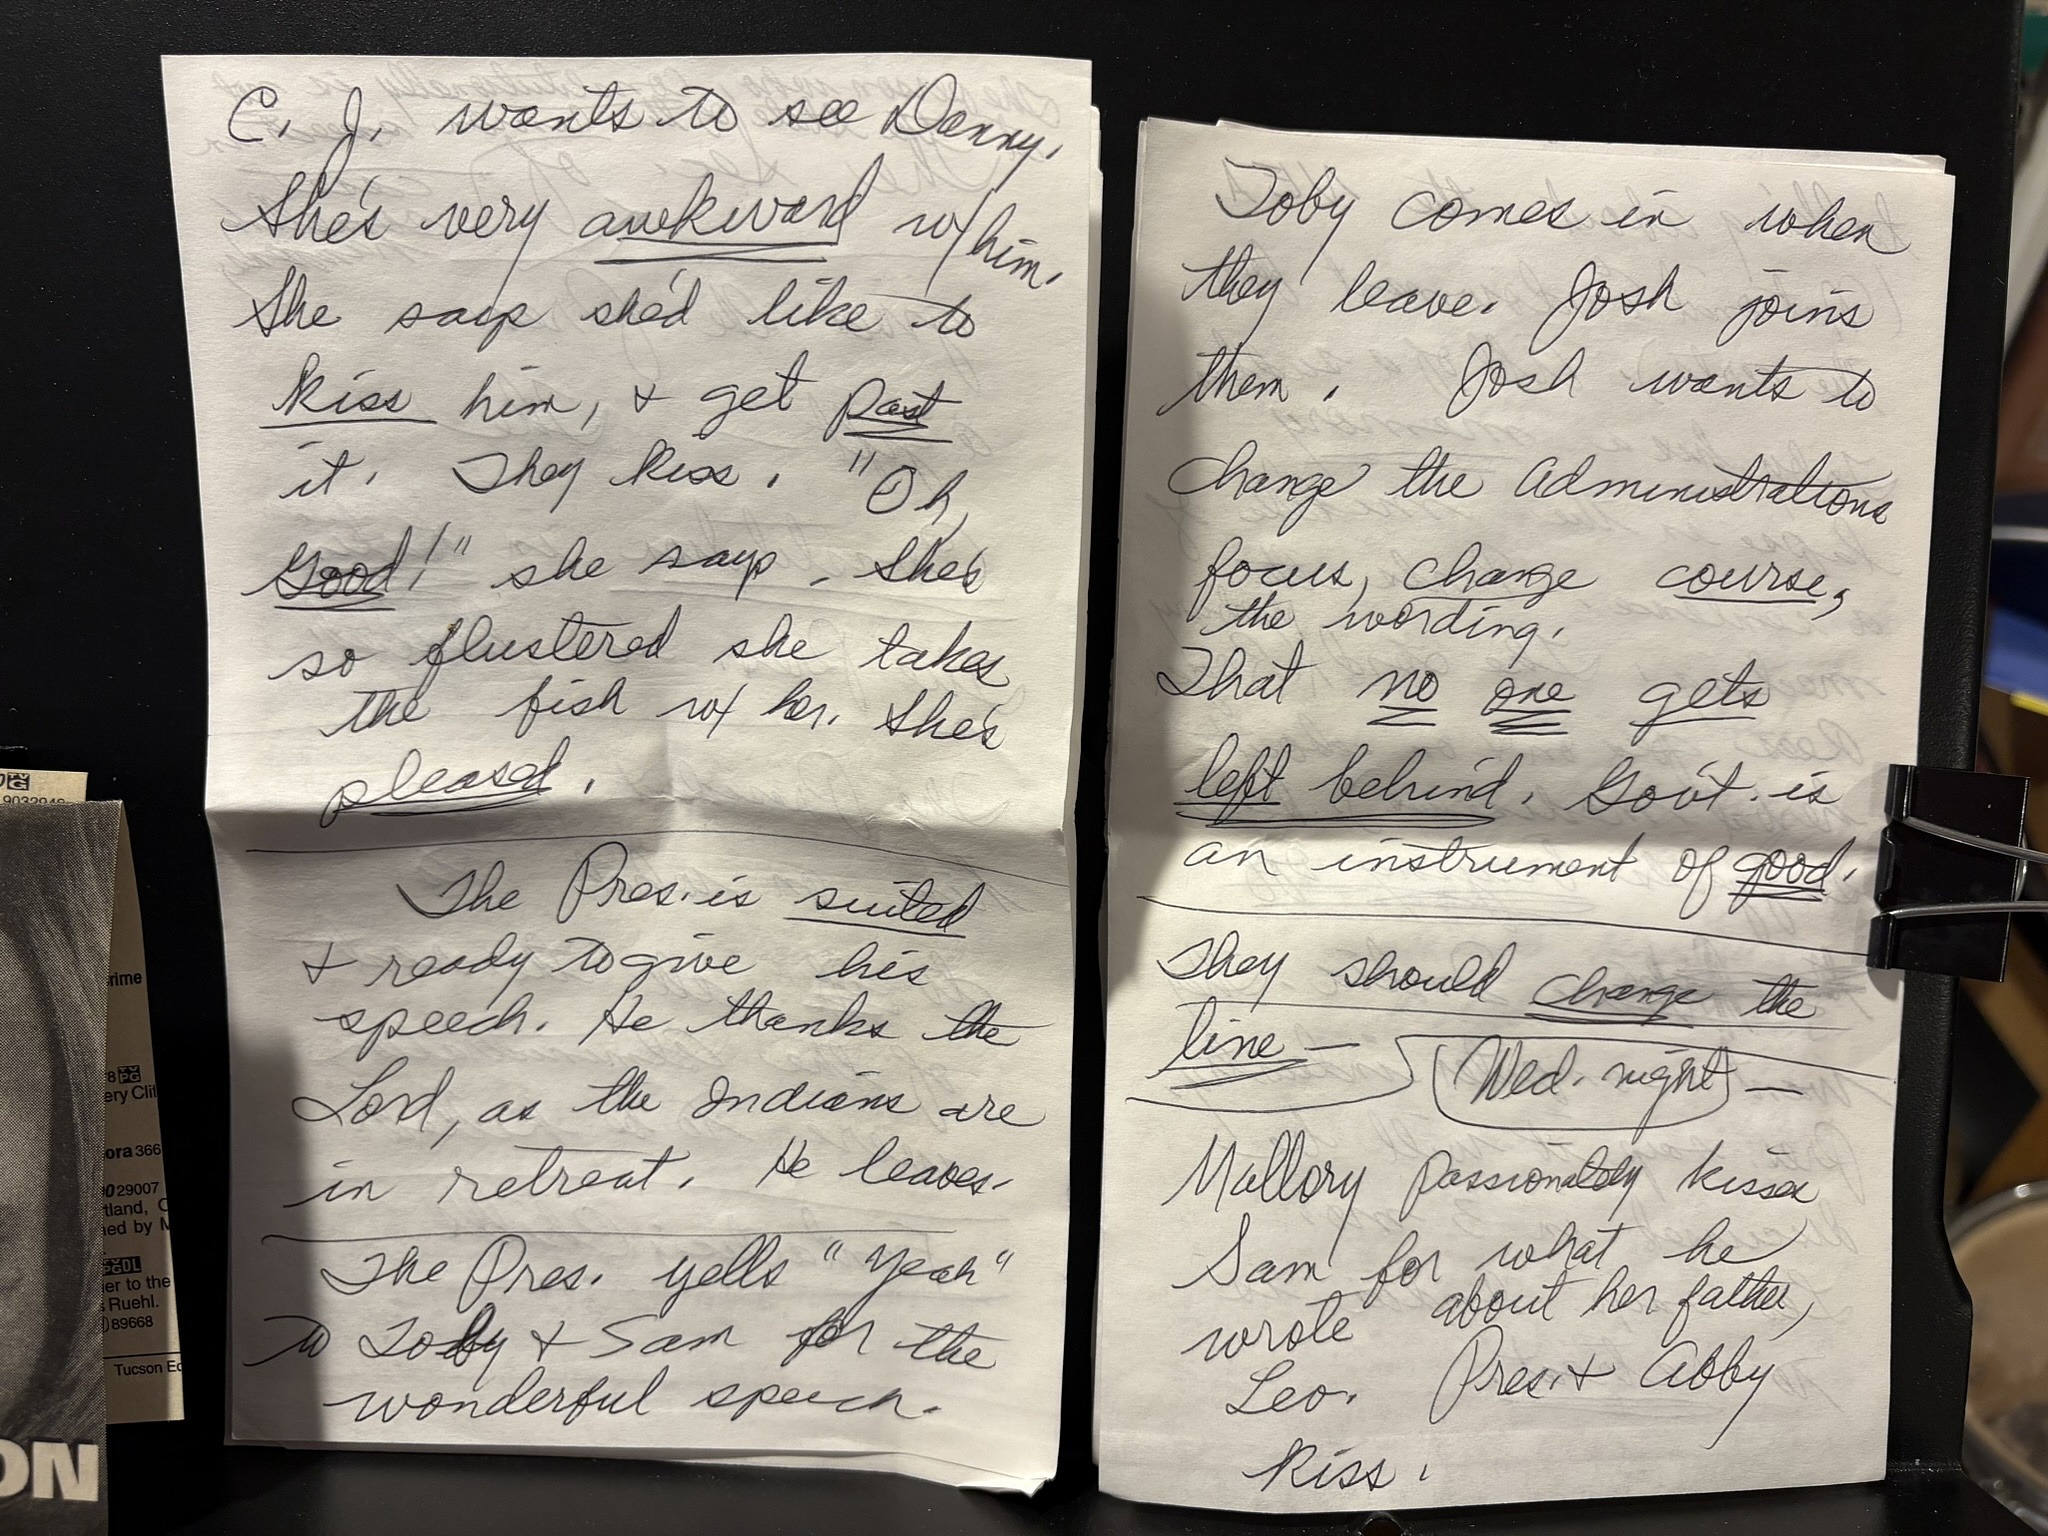 C. J. wants to see Danny.
She's very awkward w/ him.
She says she'd like to
kiss him, + get past
it. They kiss. "Oh,
Good!" she says. She's
so flustered she takes
the fish w/ her. She's
pleased.
The Pres. is suited
+ ready to give his
speech. He thanks the
Lord, as the Indians are
in retreat. He leaves.
The Pres. yells "Yeah"
to Toby + Sam for the
wonderful speech.
Toby comes in when
they leave. Josh joins
them. Josh wants to
change the Administrations
focus, change course,
the wording.
That no one gets
left behind. Gov't. is
an instrument of good.
They should change the
line —
Wed. night —
Mallory passionately kisses
Sam for what he
wrote about her father,
Leo. Pres. + Abby
kiss.
TV G
9032948
rime
8 TV PG
ery Cli
ora 366
29007
tland,
ed by M
er to the
Ruehl.
89668
Tucson Ed
ON